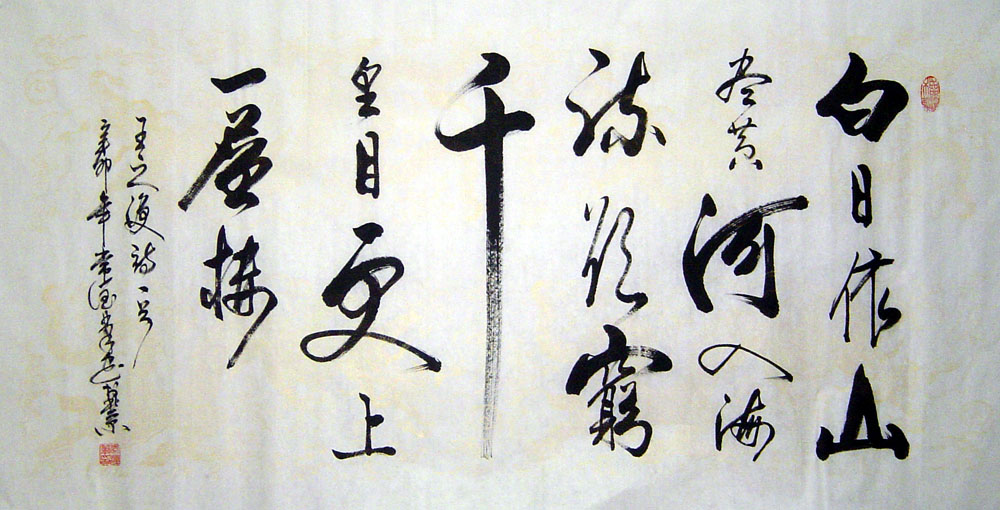 白日依山
尽黄河入海
流欲窮
千
里目更上
一層楼
王之渙詩一首
辛卯年常德